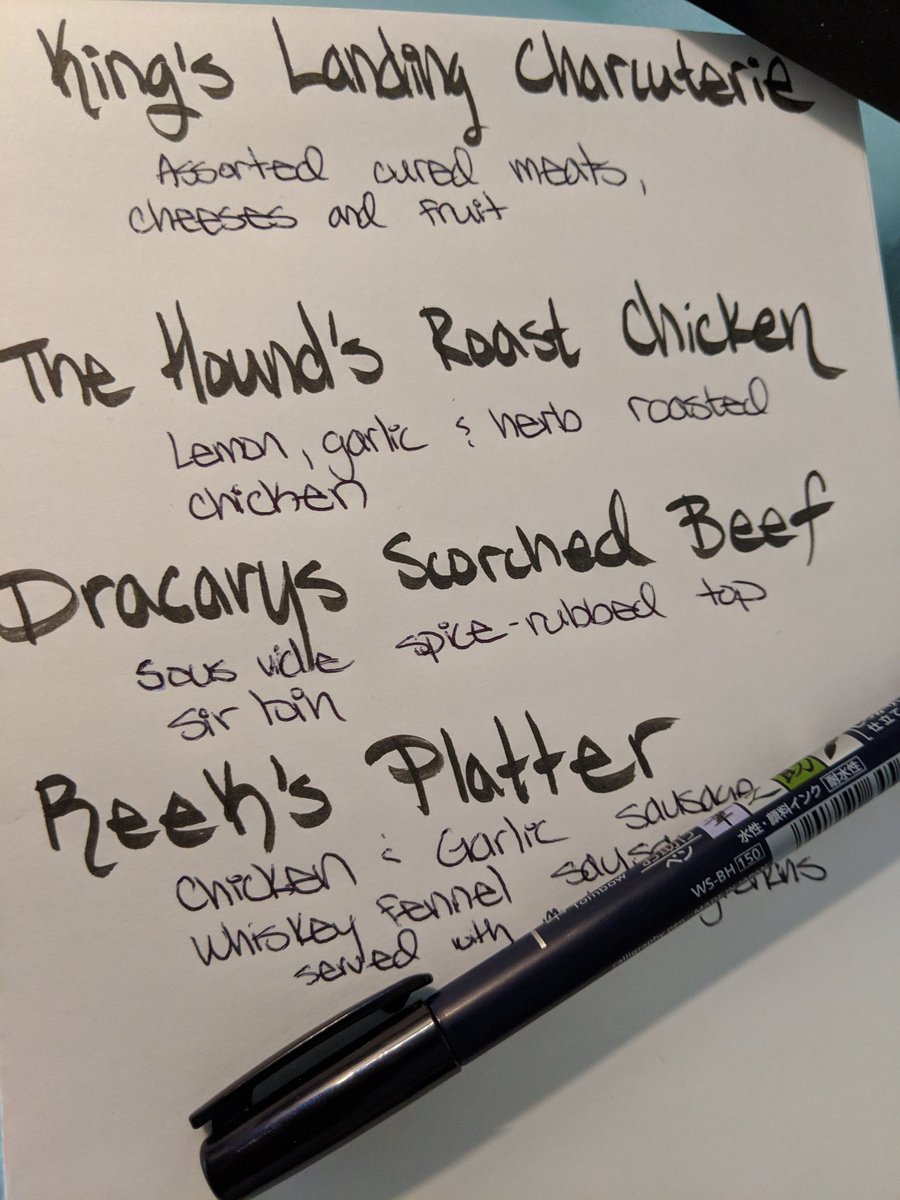 King's Landing Charcuterie
Assorted cured meats,
cheeses and fruit
The Hound's Roast Chicken
Lemon, garlic & herb roasted
chicken
Dracarys Scorched Beef
Sous vide spice-rubbed top
sirloin
Reek's Platter
Chicken & Garlic sausage
Whiskey Fennel
served with gherkins
水性・顔料インク 耐水性
ペン WS-BH 150